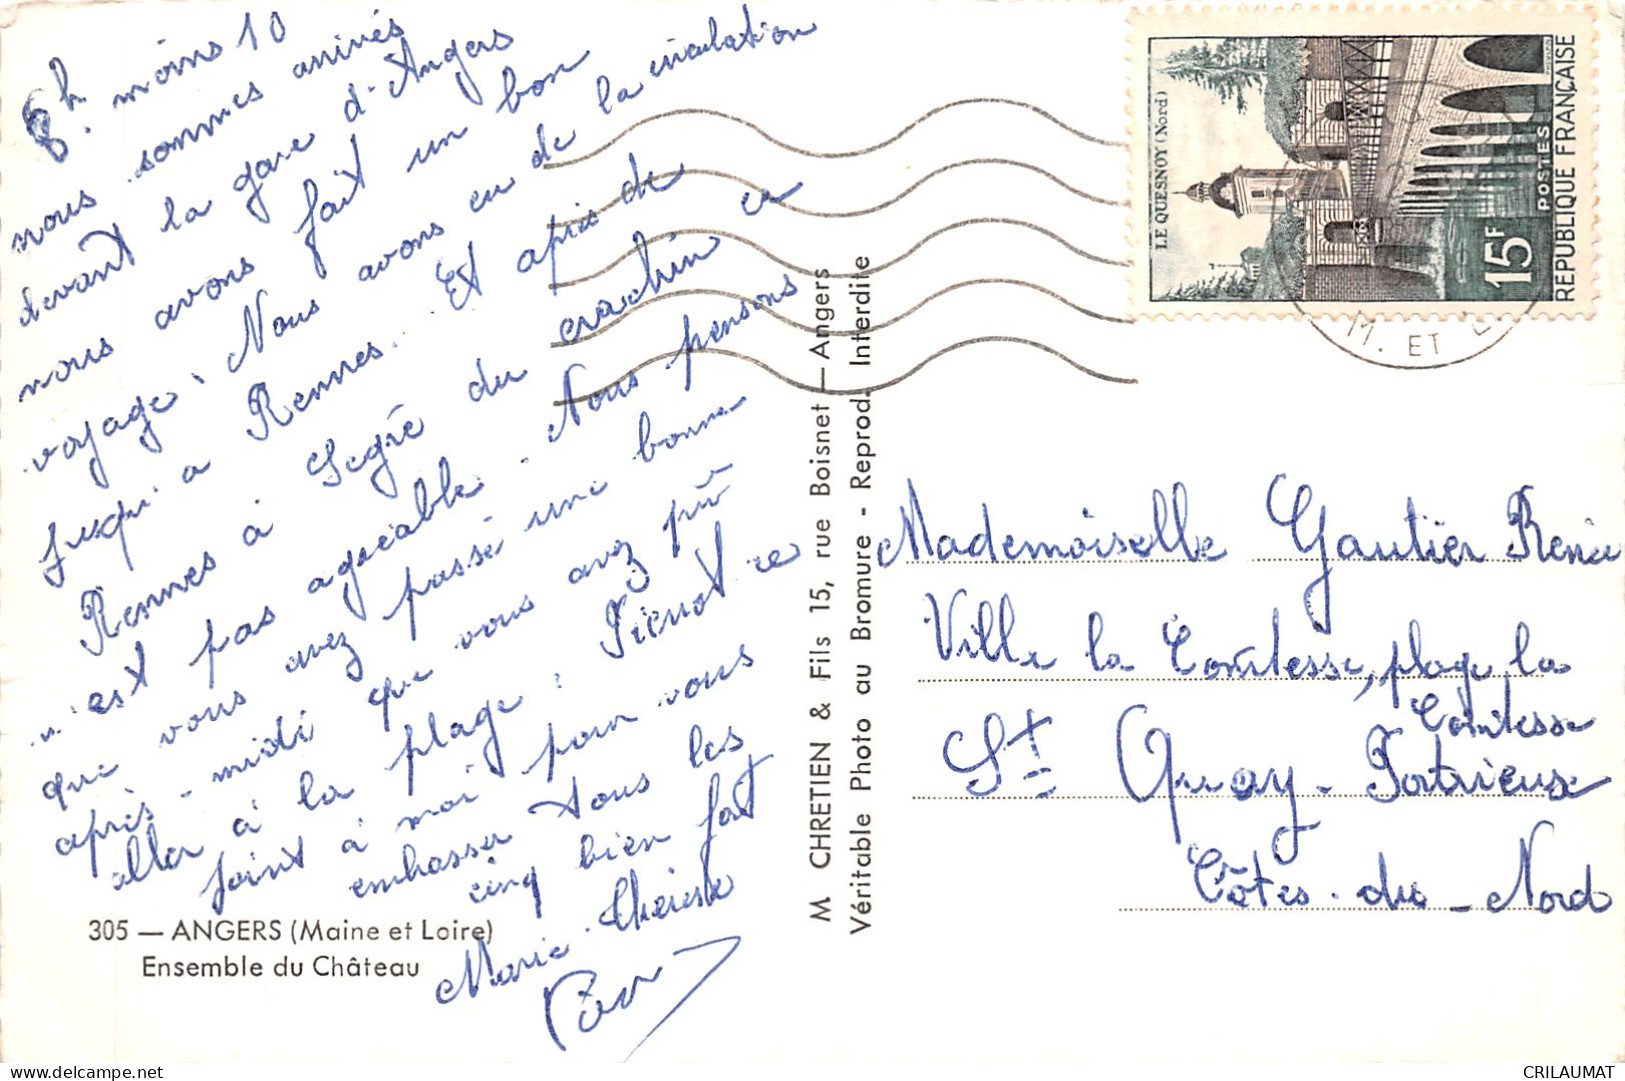 8h moins 10
nous sommes arrivés
devant la gare d'Angers
nous avons fait un bon
voyage. Nous avons eu de la circulation
jusqu'a Rennes. Et après de
Rennes à Segré du crachin ce
n'est pas agréable. Nous pensons
que vous avez passé une bonne
après-midi que vous avez pû
aller à la plage. Pierrot se
joint à moi pour vous
embrasser tous les
cinq bien fort
Marie Thérèse
305 — ANGERS (Maine et Loire)
Ensemble du Château
M CHRETIEN & Fils 15, rue Boisnet — Angers
Véritable Photo au Bromure - Reprod. Interdite
LE QUESNOY (Nord)
15F
POSTES
REPUBLIQUE FRANÇAISE
M. ET L
Mademoiselle Gautier Renée
Ville la Comtesse, plage la
Comtesse
St Quay-Portrieux
Côtes-du-Nord
delcampe.net
CRILAUMAT